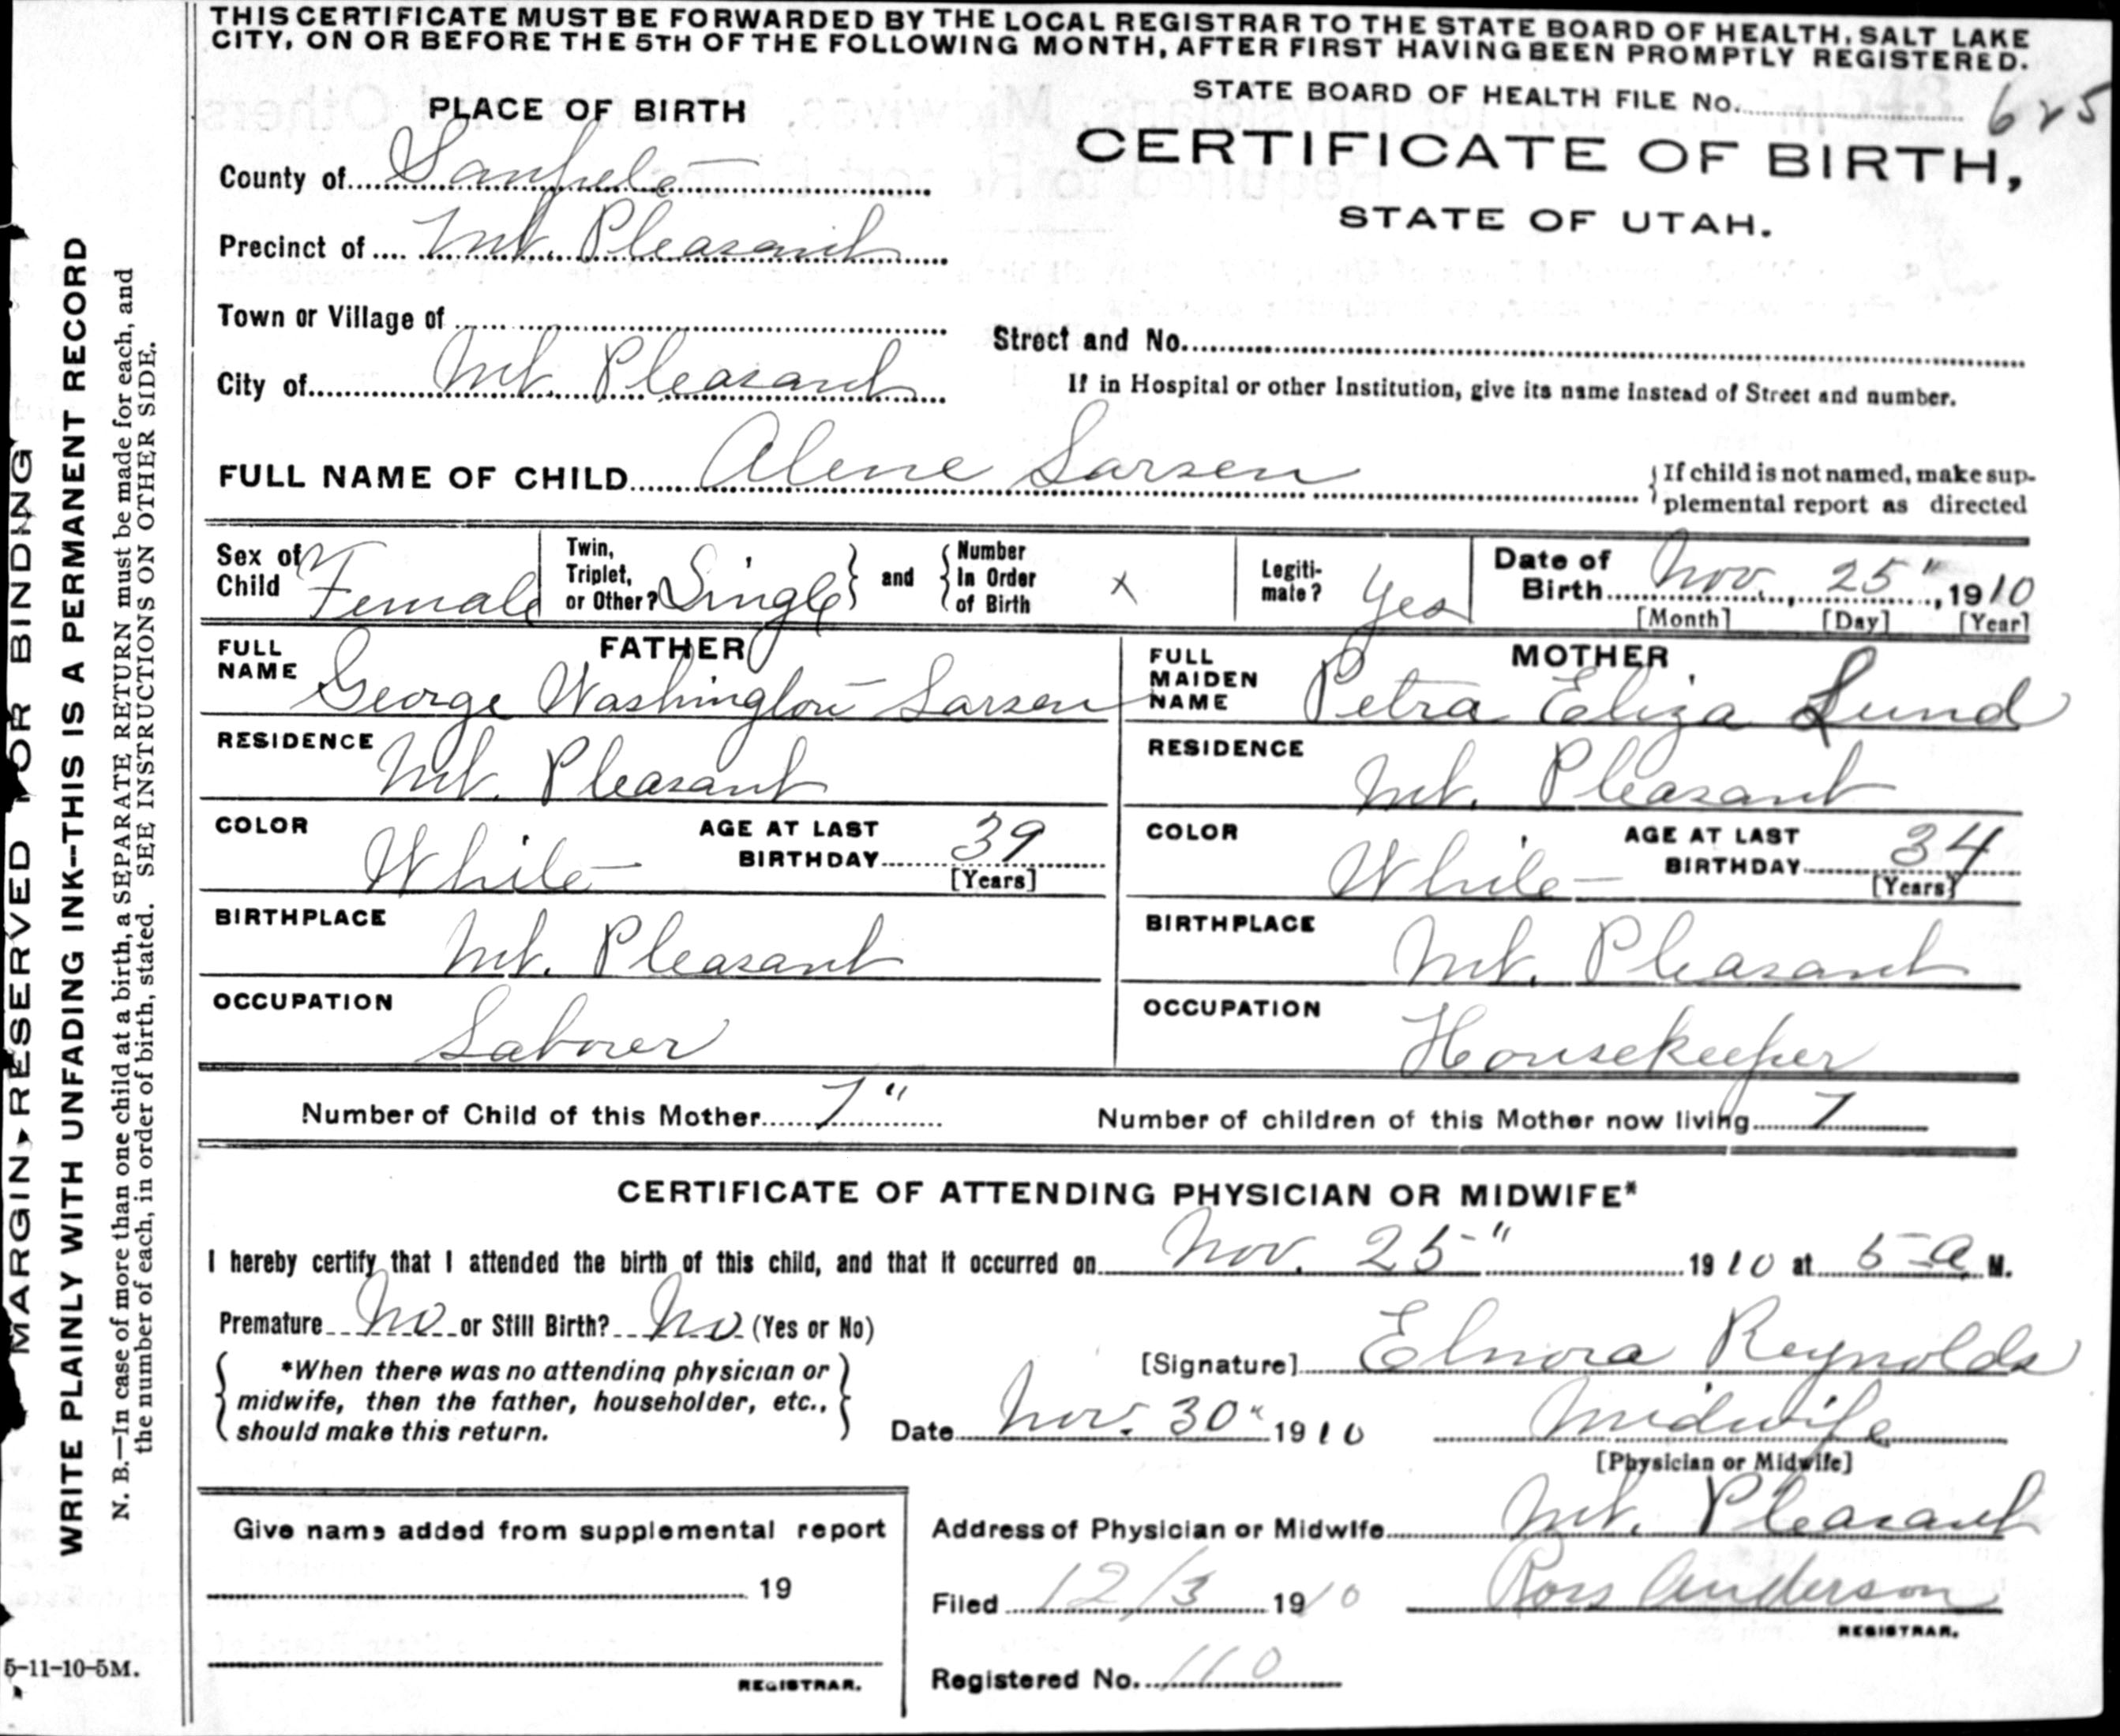 THIS CERTIFICATE MUST BE FORWARDED BY THE LOCAL REGISTRAR TO THE STATE BOARD OF HEALTH, SALT LAKE
CITY, ON OR BEFORE THE 5TH OF THE FOLLOWING MONTH, AFTER FIRST HAVING BEEN PROMPTLY REGISTERED.
STATE BOARD OF HEALTH FILE No. 625
PLACE OF BIRTH
CERTIFICATE OF BIRTH,
STATE OF UTAH.
County of Sanpete
Precinct of Mt. Pleasant
Town or Village of
Street and No.
City of Mt. Pleasant
If in Hospital or other Institution, give its name instead of Street and number.
FULL NAME OF CHILD Alene Larsen
{If child is not named, make sup-
plemental report as directed
Sex of Child Female
Twin, Triplet, or Other? Single } and { Number In Order of Birth x
Legiti-mate? Yes
Date of Birth Nov. 25", 1910
[Month] [Day] [Year]
FATHER
FULL NAME George Washington Larsen
RESIDENCE Mt. Pleasant
COLOR White AGE AT LAST BIRTHDAY 39
[Years]
BIRTHPLACE Mt. Pleasant
OCCUPATION Laborer
MOTHER
FULL MAIDEN NAME Petra Eliza Lund
RESIDENCE Mt. Pleasant
COLOR White AGE AT LAST BIRTHDAY 34
[Years]
BIRTHPLACE Mt. Pleasant
OCCUPATION Housekeeper
Number of Child of this Mother 7" Number of children of this Mother now living 7
CERTIFICATE OF ATTENDING PHYSICIAN OR MIDWIFE*
I hereby certify that I attended the birth of this child, and that it occurred on Nov. 25" 1910 at 5 a M.
Premature No or Still Birth? No (Yes or No)
[Signature] Elnora Reynolds
*When there was no attending physician or
midwife, then the father, householder, etc.,
should make this return.
Date Nov. 30" 1910 Midwife
[Physician or Midwife]
Give name added from supplemental report
19
REGISTRAR.
Address of Physician or Midwife Mt. Pleasant
Filed 12/3 1910 Ross Anderson
REGISTRAR.
Registered No. 110
MARGIN RESERVED FOR BINDING
WRITE PLAINLY WITH UNFADING INK—THIS IS A PERMANENT RECORD
N. B.—In case of more than one child at a birth, a SEPARATE RETURN must be made for each, and
the number of each, in order of birth, stated. SEE INSTRUCTIONS ON OTHER SIDE.
5-11-10-5M.